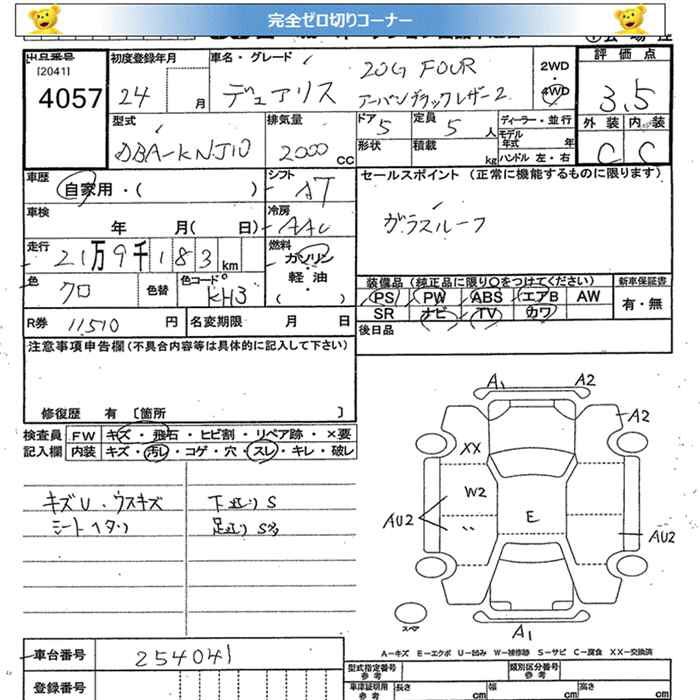 完全ゼロ切りコーナー
出品番号
[2041]
4057
初度登録年月
24 月
車名・グレード
デュアリス
20G FOUR
アーバンブラックレザー2
2WD
4WD
評価点
3.5
外装 内装
C C
型式
DBA-KNJ10
排気量
2000 cc
ドア 5
定員 5 人
形状
積載 kg
ディーラー・並行
モデル年式 年
ハンドル 左・右
車歴
自家用・( )
シフト AT
車検
年 月( 日)
冷房 AAC
走行
21万9千183 km
燃料
ガソリン
軽・油
( )
色
クロ
色替
色コード
KH3
R券 11,510 円
名変期限 月 日
セールスポイント (正常に機能するものに限ります)
ガラスルーフ
装備品 (純正品に限り○をつけてください)
新車保証書
PS PW ABS エアB AW
SR ナビ TV カワ
有・無
後日品
注意事項申告欄(不具合内容等は具体的に記入して下さい)
修復歴 有 [箇所 ]
検査員記入欄
FW キズ・飛石・ヒビ割・リペア跡・×要
内装 キズ・汚レ・コゲ・穴・スレ・キレ・破レ
キズU・ウスキズ
シートヘタリ
下廻り S
足廻り S多
A1 A2
A2
XX
W2
E
AU2
AU2
A1
スペア
A-キズ E-エクボ U-凹み W-補修跡 S-サビ C-腐食 XX-交換済
車台番号 254041
登録番号
型式指定番号 参考
類別区分番号 参考
車庫証明用 参考
長さ cm
幅 cm
高さ cm